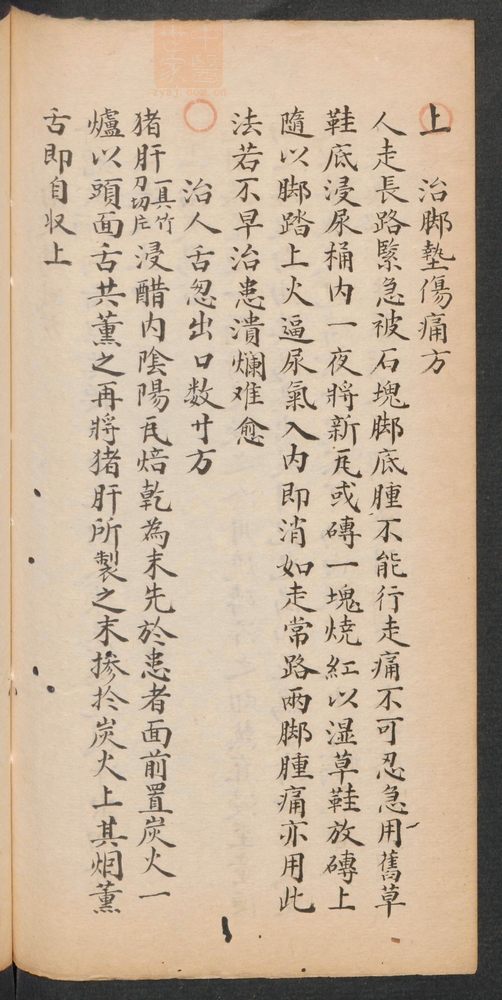 上　治脚墊傷痛方
人走長路緊急被石塊脚底腫不能行走痛不可忍急用舊草
鞋底浸尿桶内一夜將新瓦或磚一塊燒紅以湿草鞋放磚上
隨以脚踏上火逼尿氣入内即消如走常路兩脚腫痛亦用此
法若不早治患潰爛难愈
治人舌忽出口数寸方
猪肝一具竹刀切片浸醋内陰陽瓦焙乾為末先於患者面前置炭火一
爐以頭面舌共薰之再將猪肝所製之末掺扵炭火上其烟薰
舌即自收上